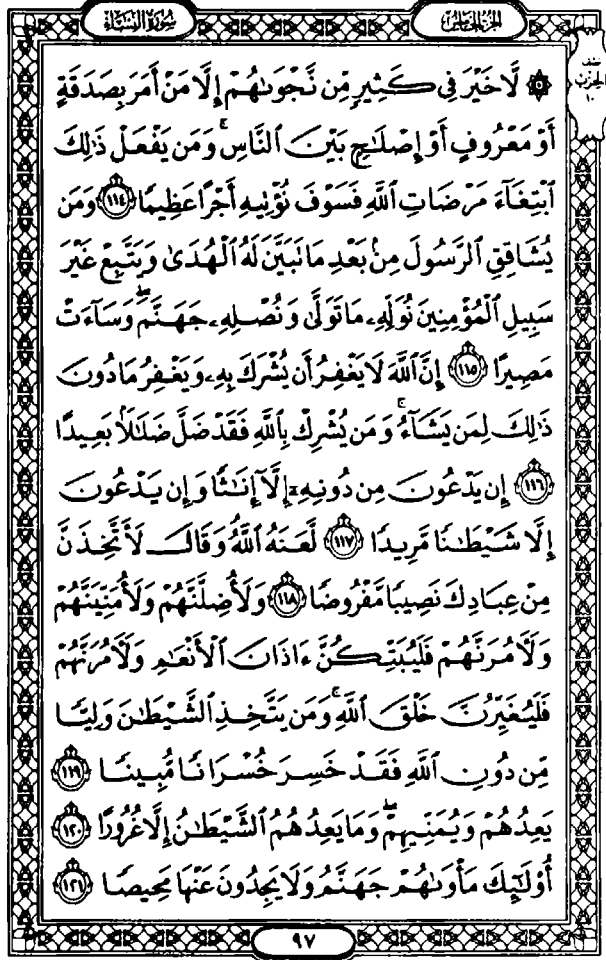 سُورَةُ النِّسَاءِ
الجُزْءُ الخَامِسُ
نِصْف
الحِزْب
١٠
۞ لَّا خَيْرَ فِي كَثِيرٍ مِّن نَّجْوَىٰهُمْ إِلَّا مَنْ أَمَرَ بِصَدَقَةٍ
أَوْ مَعْرُوفٍ أَوْ إِصْلَٰحٍۭ بَيْنَ ٱلنَّاسِۚ وَمَن يَفْعَلْ ذَٰلِكَ
ٱبْتِغَآءَ مَرْضَاتِ ٱللَّهِ فَسَوْفَ نُؤْتِيهِ أَجْرًا عَظِيمًا ١١٤ وَمَن
يُشَاقِقِ ٱلرَّسُولَ مِنۢ بَعْدِ مَا تَبَيَّنَ لَهُ ٱلْهُدَىٰ وَيَتَّبِعْ غَيْرَ
سَبِيلِ ٱلْمُؤْمِنِينَ نُوَلِّهِۦ مَا تَوَلَّىٰ وَنُصْلِهِۦ جَهَنَّمَۖ وَسَآءَتْ
مَصِيرًا ١١٥ إِنَّ ٱللَّهَ لَا يَغْفِرُ أَن يُشْرَكَ بِهِۦ وَيَغْفِرُ مَا دُونَ
ذَٰلِكَ لِمَن يَشَآءُۚ وَمَن يُشْرِكْ بِٱللَّهِ فَقَدْ ضَلَّ ضَلَٰلًۢا بَعِيدًا
١١٦ إِن يَدْعُونَ مِن دُونِهِۦٓ إِلَّآ إِنَٰثًا وَإِن يَدْعُونَ
إِلَّا شَيْطَٰنًا مَّرِيدًا ١١٧ لَّعَنَهُ ٱللَّهُۘ وَقَالَ لَأَتَّخِذَنَّ
مِنْ عِبَادِكَ نَصِيبًا مَّفْرُوضًا ١١٨ وَلَأُضِلَّنَّهُمْ وَلَأُمَنِّيَنَّهُمْ
وَلَـَٔامُرَنَّهُمْ فَلَيُبَتِّكُنَّ ءَاذَانَ ٱلْأَنْعَٰمِ وَلَـَٔامُرَنَّهُمْ
فَلَيُغَيِّرُنَّ خَلْقَ ٱللَّهِۚ وَمَن يَتَّخِذِ ٱلشَّيْطَٰنَ وَلِيًّا
مِّن دُونِ ٱللَّهِ فَقَدْ خَسِرَ خُسْرَانًا مُّبِينًا ١١٩
يَعِدُهُمْ وَيُمَنِّيهِمْۖ وَمَا يَعِدُهُمُ ٱلشَّيْطَٰنُ إِلَّا غُرُورًا ١٢٠
أُو۟لَٰٓئِكَ مَأْوَىٰهُمْ جَهَنَّمُ وَلَا يَجِدُونَ عَنْهَا مَحِيصًا ١٢١
٩٧